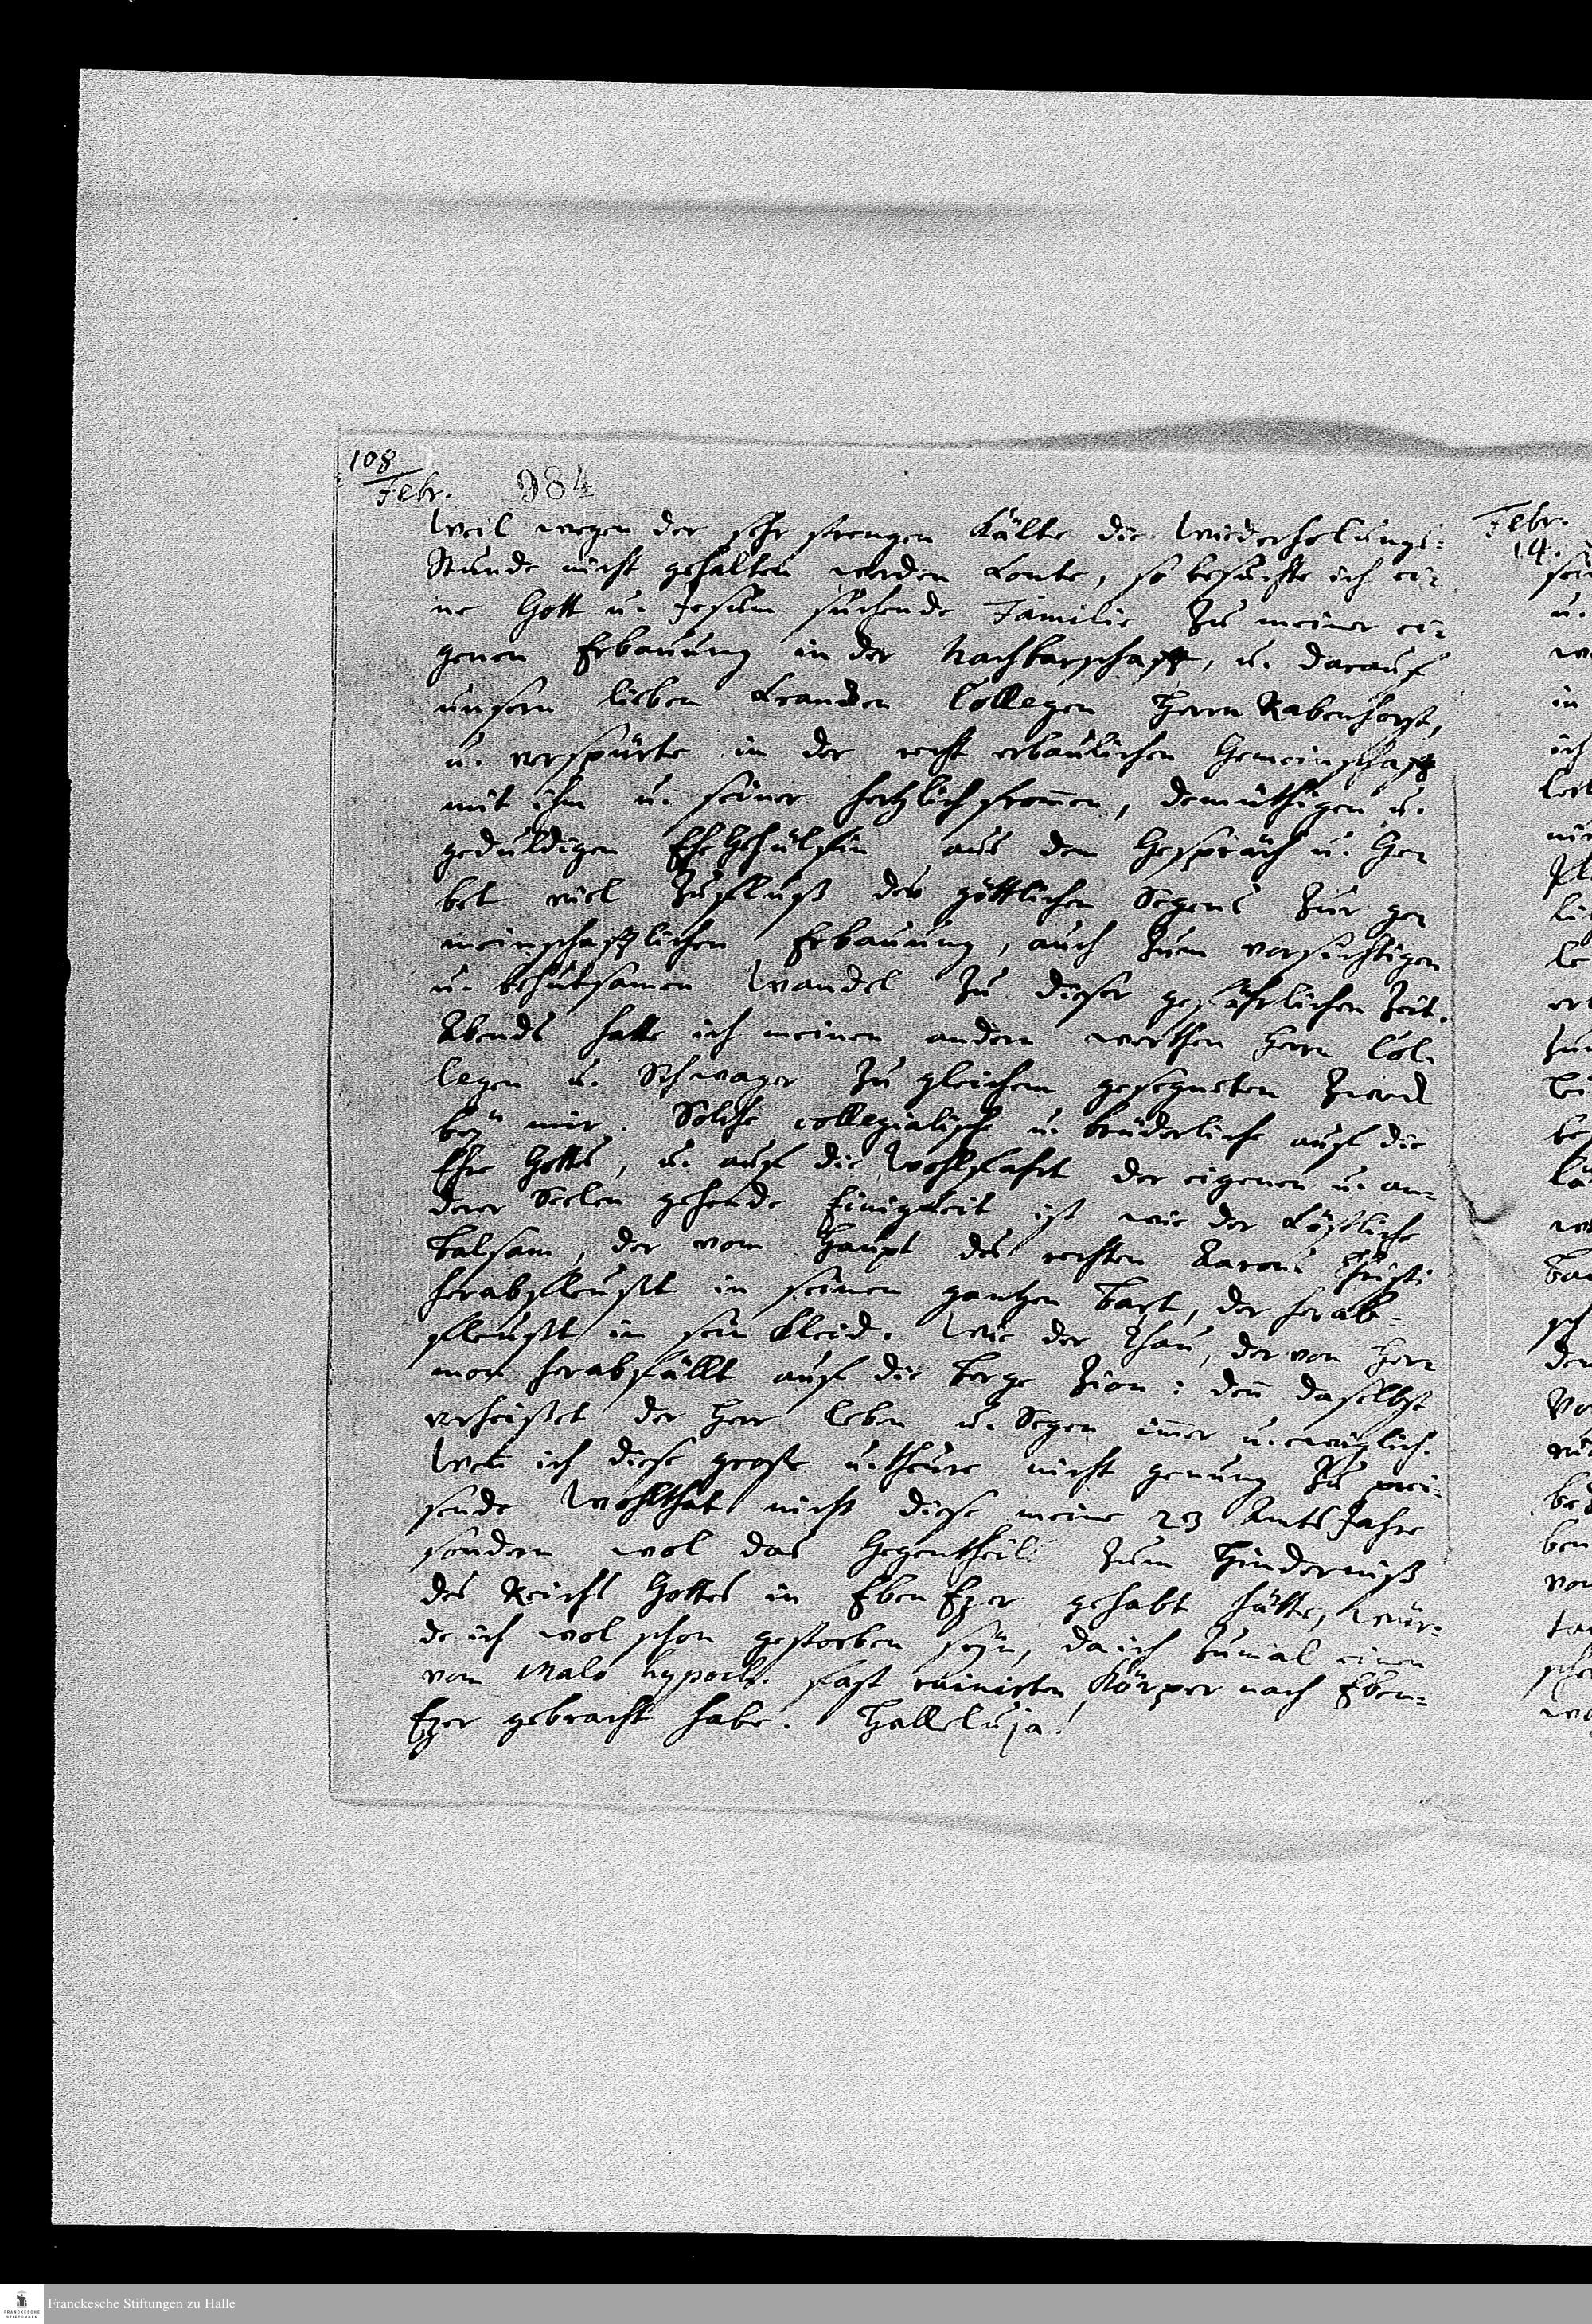 108
Febr. 984
Weil wegen der sehr strengen Kälte die Wiederholungs-
Stunde nicht gehalten werden konte, so besuchte ich ei-
ne Gott u. Jesum suchende Familie zu meiner ei-
genen Erbauung in der Nachbarschafft, u. darauf
unsern lieben krancken Collegen Herrn Rabenhorst,
u. verspürte in der recht erbaulichen Gemeinschafft
mit ihm u. seiner hertzlich from̄en, demüthigen u.
geduldigen EheGehülfin aus dem Gespräch u. Ge-
bet viel Zufluß des göttlichen Segens zur ge-
meinschafftlichen Erbauung, auch zum vorsichtigen
u. behutsamen Wandel zu dieser gefährlichen Zeit.
Abends hatte ich meinen andern werthen Herrn Col-
legen u. Schwager zu gleichem gesegneten Zweck
bey mir. Solche collegialische u. brüderliche auf die
Ehre Gottes, u. auf die Wohlfahrt der eigenen u. an-
derer Seelen gehende Einigkeit ist wie der köstliche
Balsam, der vom Haupt des rechten Aarons Christi
herabfleußt in seinen gantzen Bart, der herab-
fleußt in sein Kleid. Wie der Thau, der von Her-
mon herabfällt auf die Berge Zion: den̄ daselbst
verheißet der Herr Leben u. Segen im̄er u. ewiglich.
Wen̄ ich diese große u. theure nicht genung zu prei-
sende Wohlthat nicht diese meine 23 Amts Jahre
sondern wol das Gegentheil zum Hinderniß
des Reichs Gottes in Eben Ezer gehabt hätte, wür-
de ich wol schon gestorben seyn, da ich zumal einen
vom Malo hypoch. fast ruinirten Körper nach Eben-
Ezer gebracht habe. Halleluja!
Febr.
14.
Franckesche Stiftungen zu Halle